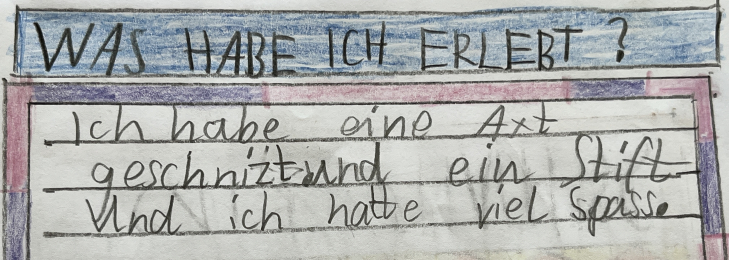 WAS HABE ICH ERLEBT?
Ich habe eine Axt
geschnizt und ein Stift
Und ich hatte viel spass.